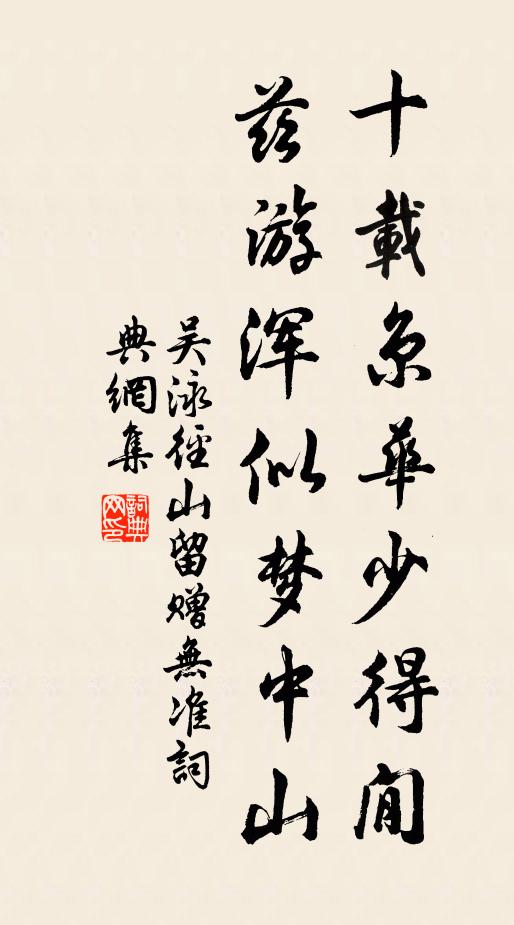 十載京華少得閒
茲游渾似梦中山
吴泳徑山留贈無准詞
典網集
詞典網印